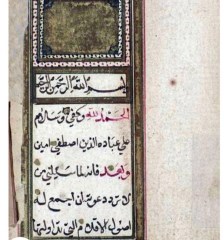 بسم الله الرحمن الرحيم
الحمد لله وكفى وسلام
على عباده الذين اصطفى امين
وبعد فانه لما سألني من
لا ترد دعوته ان اجمع له
اصول الاقلام التي